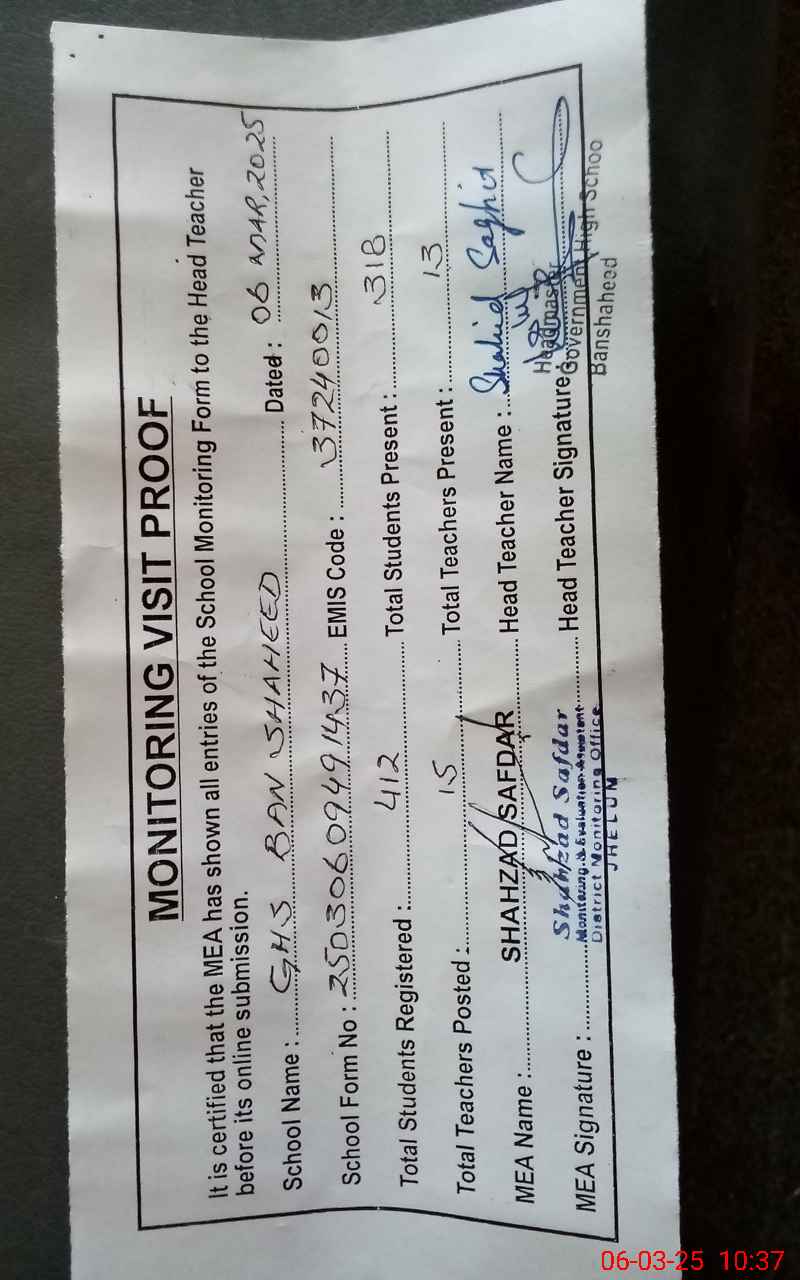 MONITORING VISIT PROOF
It is certified that the MEA has shown all entries of the School Monitoring Form to the Head Teacher
before its online submission.
School Name : GHS BAN SHAHEED Dated : 06 MAR, 2025
School Form No : 25030609491437 EMIS Code : 37240013
Total Students Registered : 412 Total Students Present : 318
Total Teachers Posted : 15 Total Teachers Present : 13
MEA Name : SHAHZAD SAFDAR Head Teacher Name : Shahid Saghir
MEA Signature : Shahzad Safdar Head Teacher Signature :
Monitoring & Evaluation Assistant
District Monitoring Office
JHELUM
Headmaster
Government High Schoo
Banshaheed
06-03-25 10:37